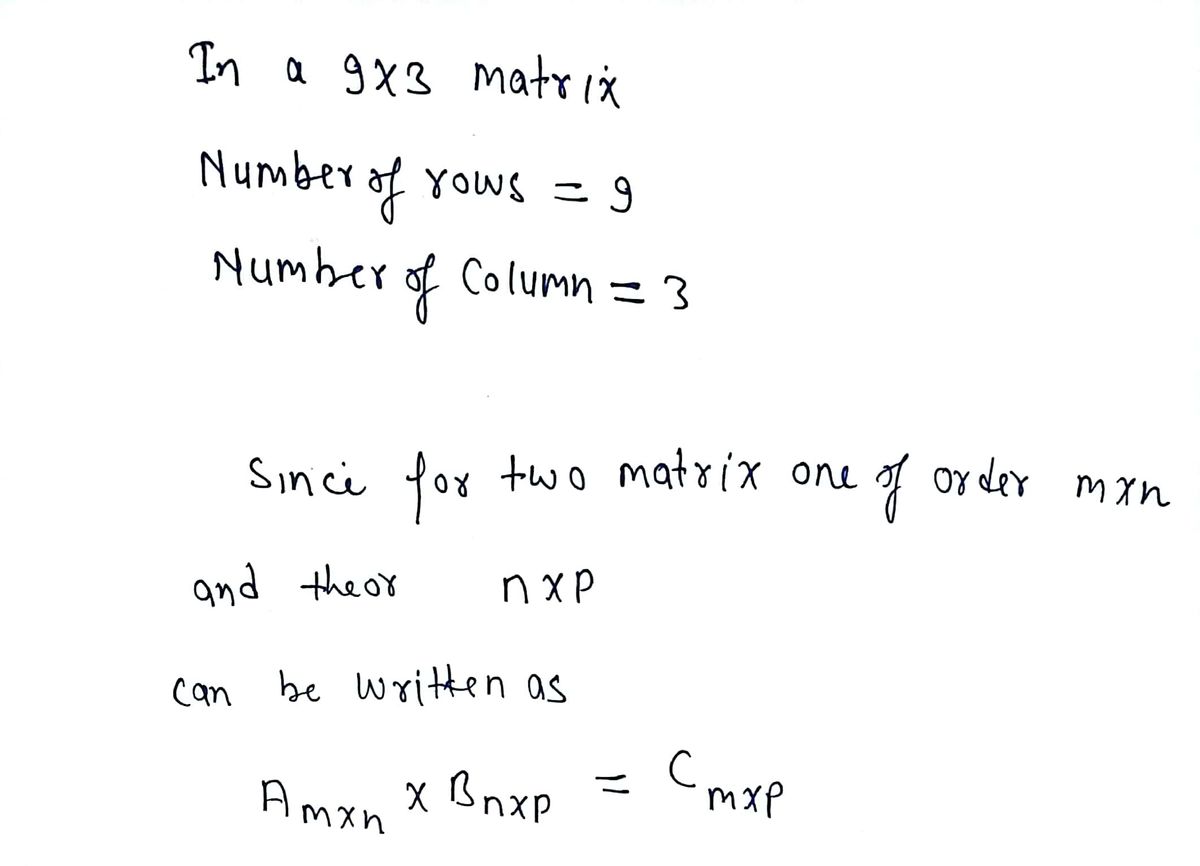 In a 9x3 matrix
Number of rows = 9
Number of Column = 3
Since for two matrix one of order mxn
and theor nxp
can be written as
Amxn x Bnxp = Cmxp